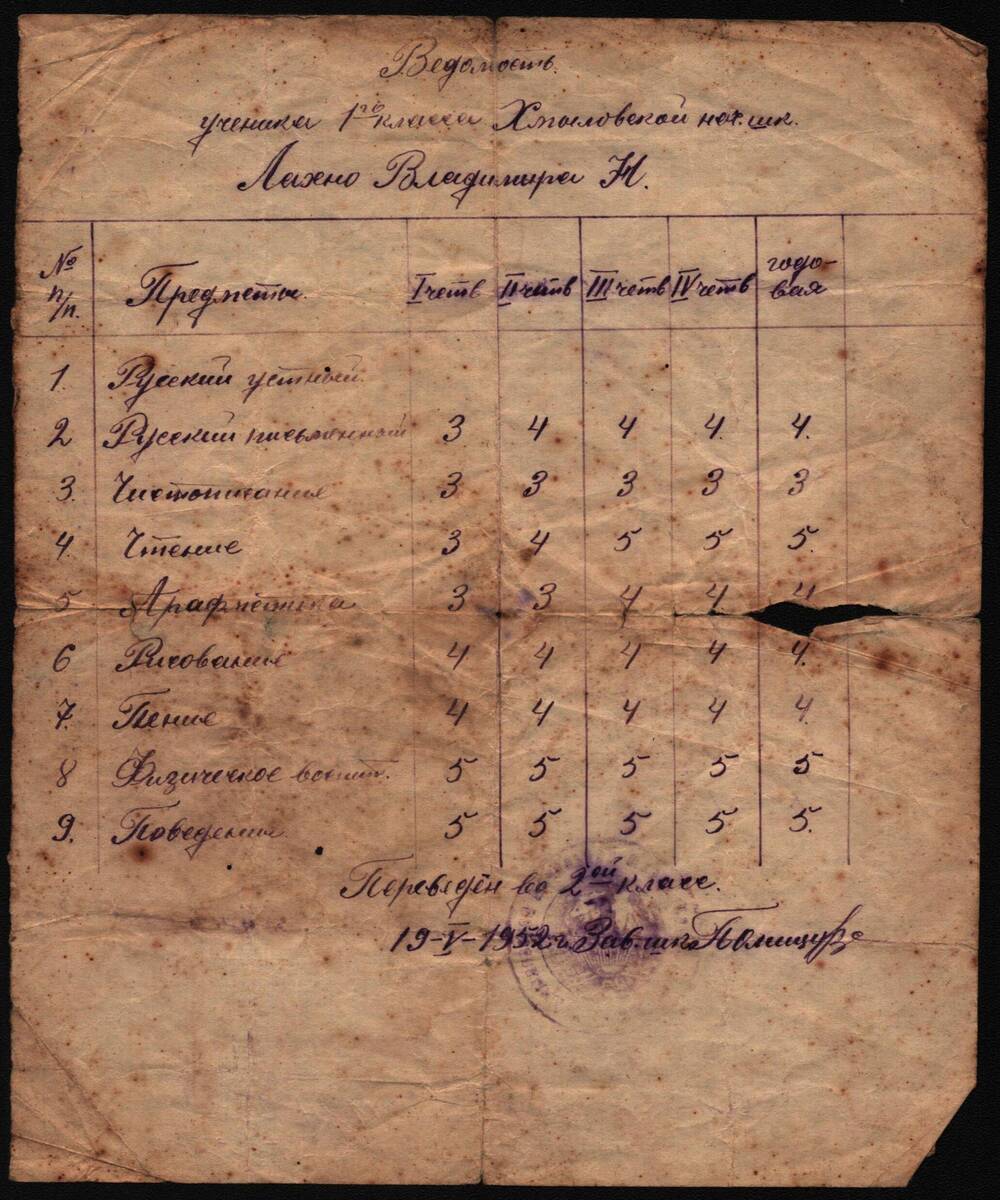 Ведомость
ученика 1го класса Хмыловской нач. шк.
Лахно Владимира Н.
№ п/п. Предметы. I четв II четв III четв IV четв годовая
1. Русский устный.
2 Русский письменный 3 4 4 4. 4.
3. Чистописание 3 3 3 3 3
4. Чтение 3 4 5 5 5.
5 Арафметика 3 3 4 4 4
6 Рисование 4 4 4 4 4.
7. Пение 4 4 4 4 4.
8 Физическое воспит. 5 5 5 5 5
9. Поведение 5 5 5 5 5.
Переведён во 2ой класс.
19-V-1952 г. Зав. шк.